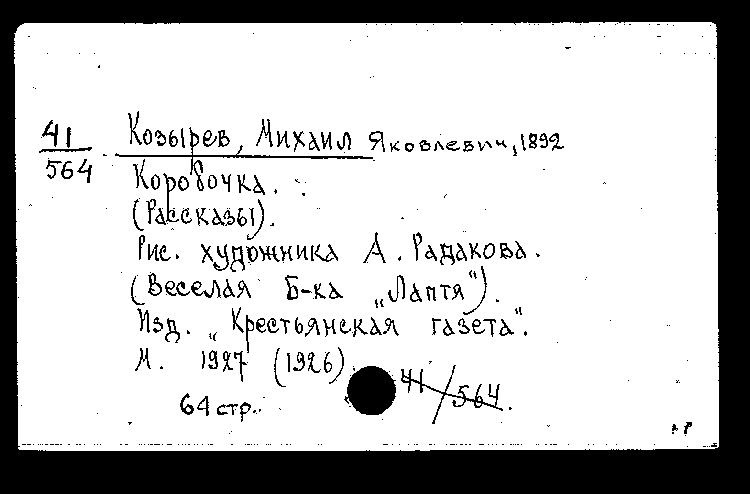 41
564
Козырев, Михаил Яковлевич, 1892
Коробочка.
(Рассказы).
Рис. художника А. Радакова.
(Веселая Б-ка „Лаптя").
Изд. „Крестьянская газета".
М. 1927 (1926)
64 стр.
41/564.